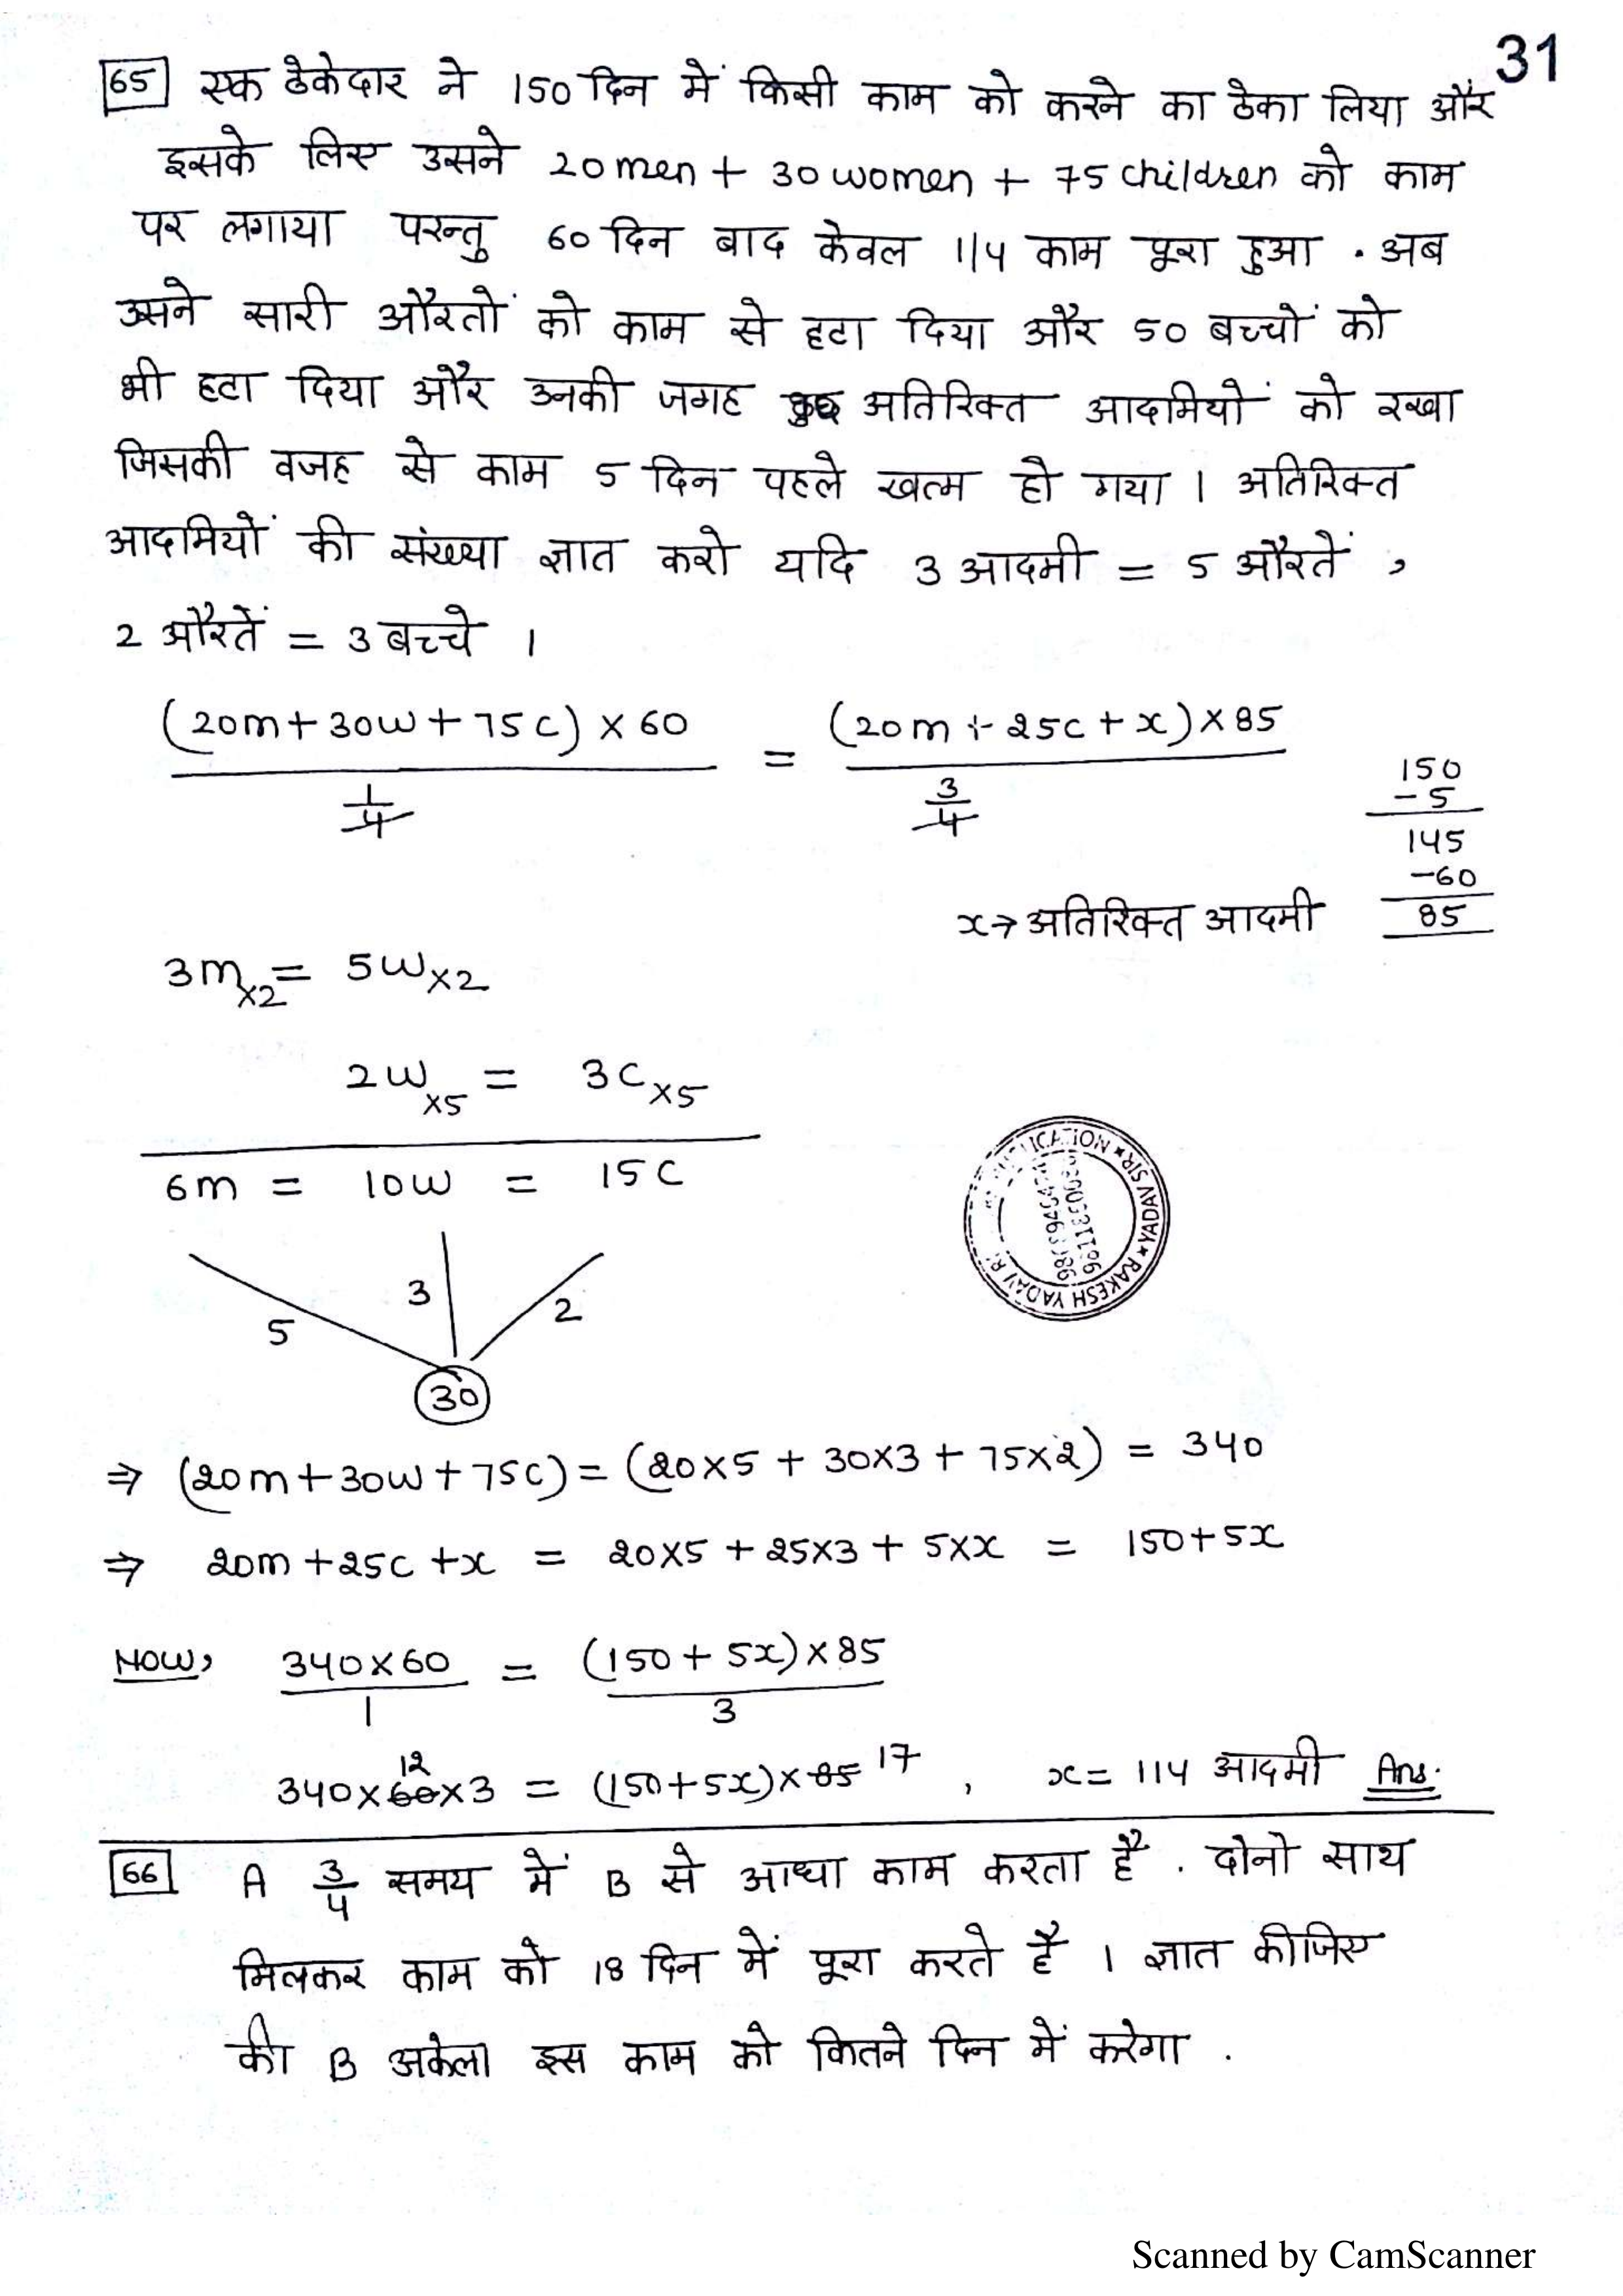 31
65 एक ठेकेदार ने 150 दिन में किसी काम को करने का ठेका लिया और
इसके लिए उसने 20 men + 30 women + 75 children को काम
पर लगाया परन्तु 60 दिन बाद केवल 1/4 काम पूरा हुआ . अब
उसने सारी औरतों को काम से हटा दिया और 50 बच्चों को
भी हटा दिया और उनकी जगह कुछ अतिरिक्त आदमियों को रखा
जिसकी वजह से काम 5 दिन पहले खत्म हो गया । अतिरिक्त
आदमियों की संख्या ज्ञात करो यदि 3 आदमी = 5 औरतें ,
2 औरतें = 3 बच्चे ।
(20m + 30w + 75c) × 60 = (20m + 25c + x) × 85
1/4 3/4
150
-5
145
-60
85
x → अतिरिक्त आदमी
3m×2 = 5w×2
2w×5 = 3c×5
6m = 10w = 15c
5 3 2
30
⇒ (20m + 30w + 75c) = (20×5 + 30×3 + 75×2) = 340
⇒ 20m + 25c + x = 20×5 + 25×3 + 5×x = 150 + 5x
Now, 340×60 = (150 + 5x) × 85
1 3
340×60×3 = (150+5x)×85 , x = 114 आदमी Ans.
12 17
66 A 3/4 समय में B से आधा काम करता है . दोनो साथ
मिलकर काम को 18 दिन में पूरा करते है । ज्ञात कीजिए
की B अकेला इस काम को कितने दिन में करेगा .
YADAV SIR ★ RAKESH YADAV
Scanned by CamScanner